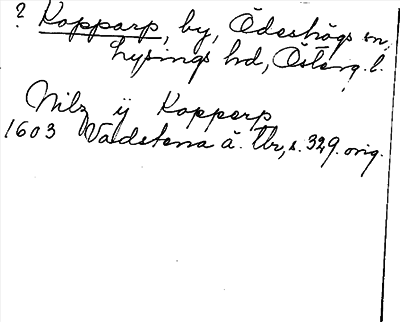 ? Kopparp, by, Ödeshögs sn,
Lysings hd, Österg. l.
Nils ij Kopperp
1603 Vadstena ä. Tbr, s. 329. orig.